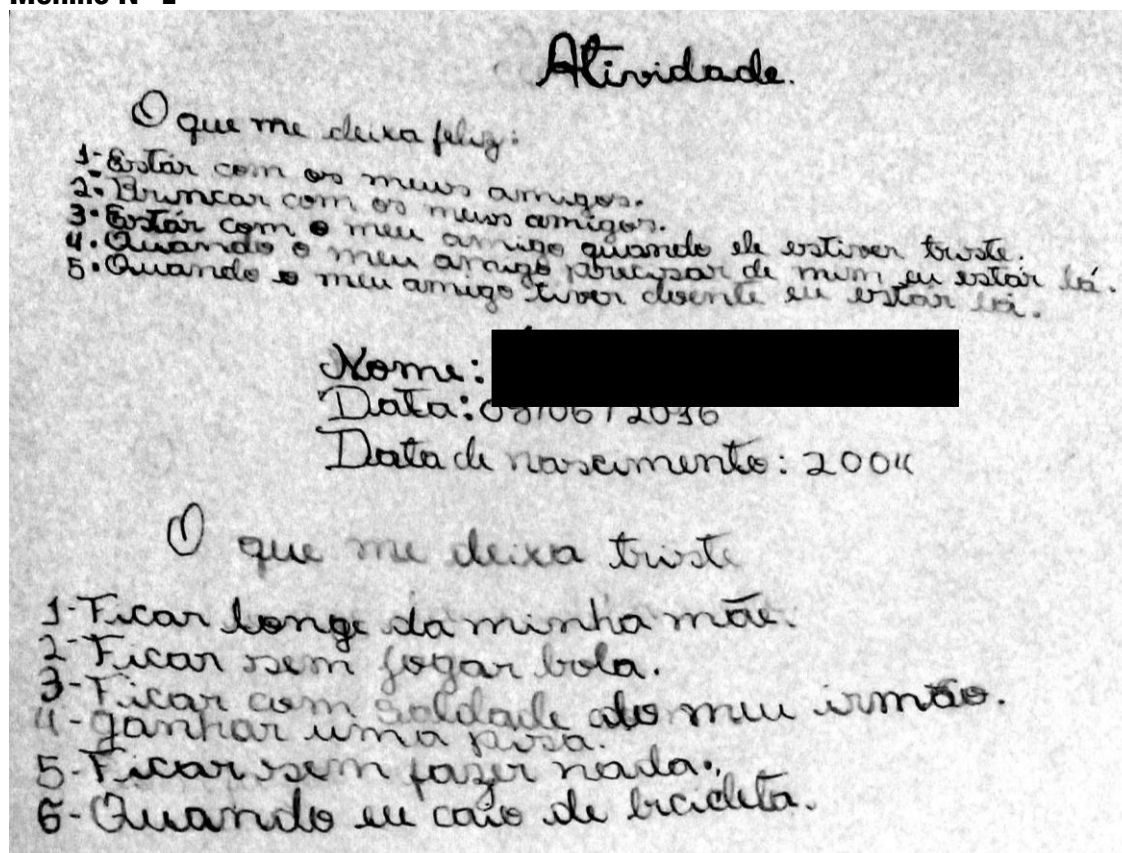 Atividade.
O que me deixa feliz:
1-Estár com os meus amigos.
2-Brincar com os meus amigos.
3-Estár com o meu amigo quando ele estiver triste.
4.Quando o meu amigo precisar de mim eu estar lá.
5.Quando o meu amigo tiver doente eu estar lá.
Nome:
Data: /06/2016
Data de nascimento: 2004
O que me deixa triste
1-Ficar longe da minha mãe.
2-Ficar sem jogar bola.
3-Ficar com saldade do meu irmão.
4-ganhar uma pisa.
5-Ficar sem fazer nada.
6-Quando eu caio de bicicleta.